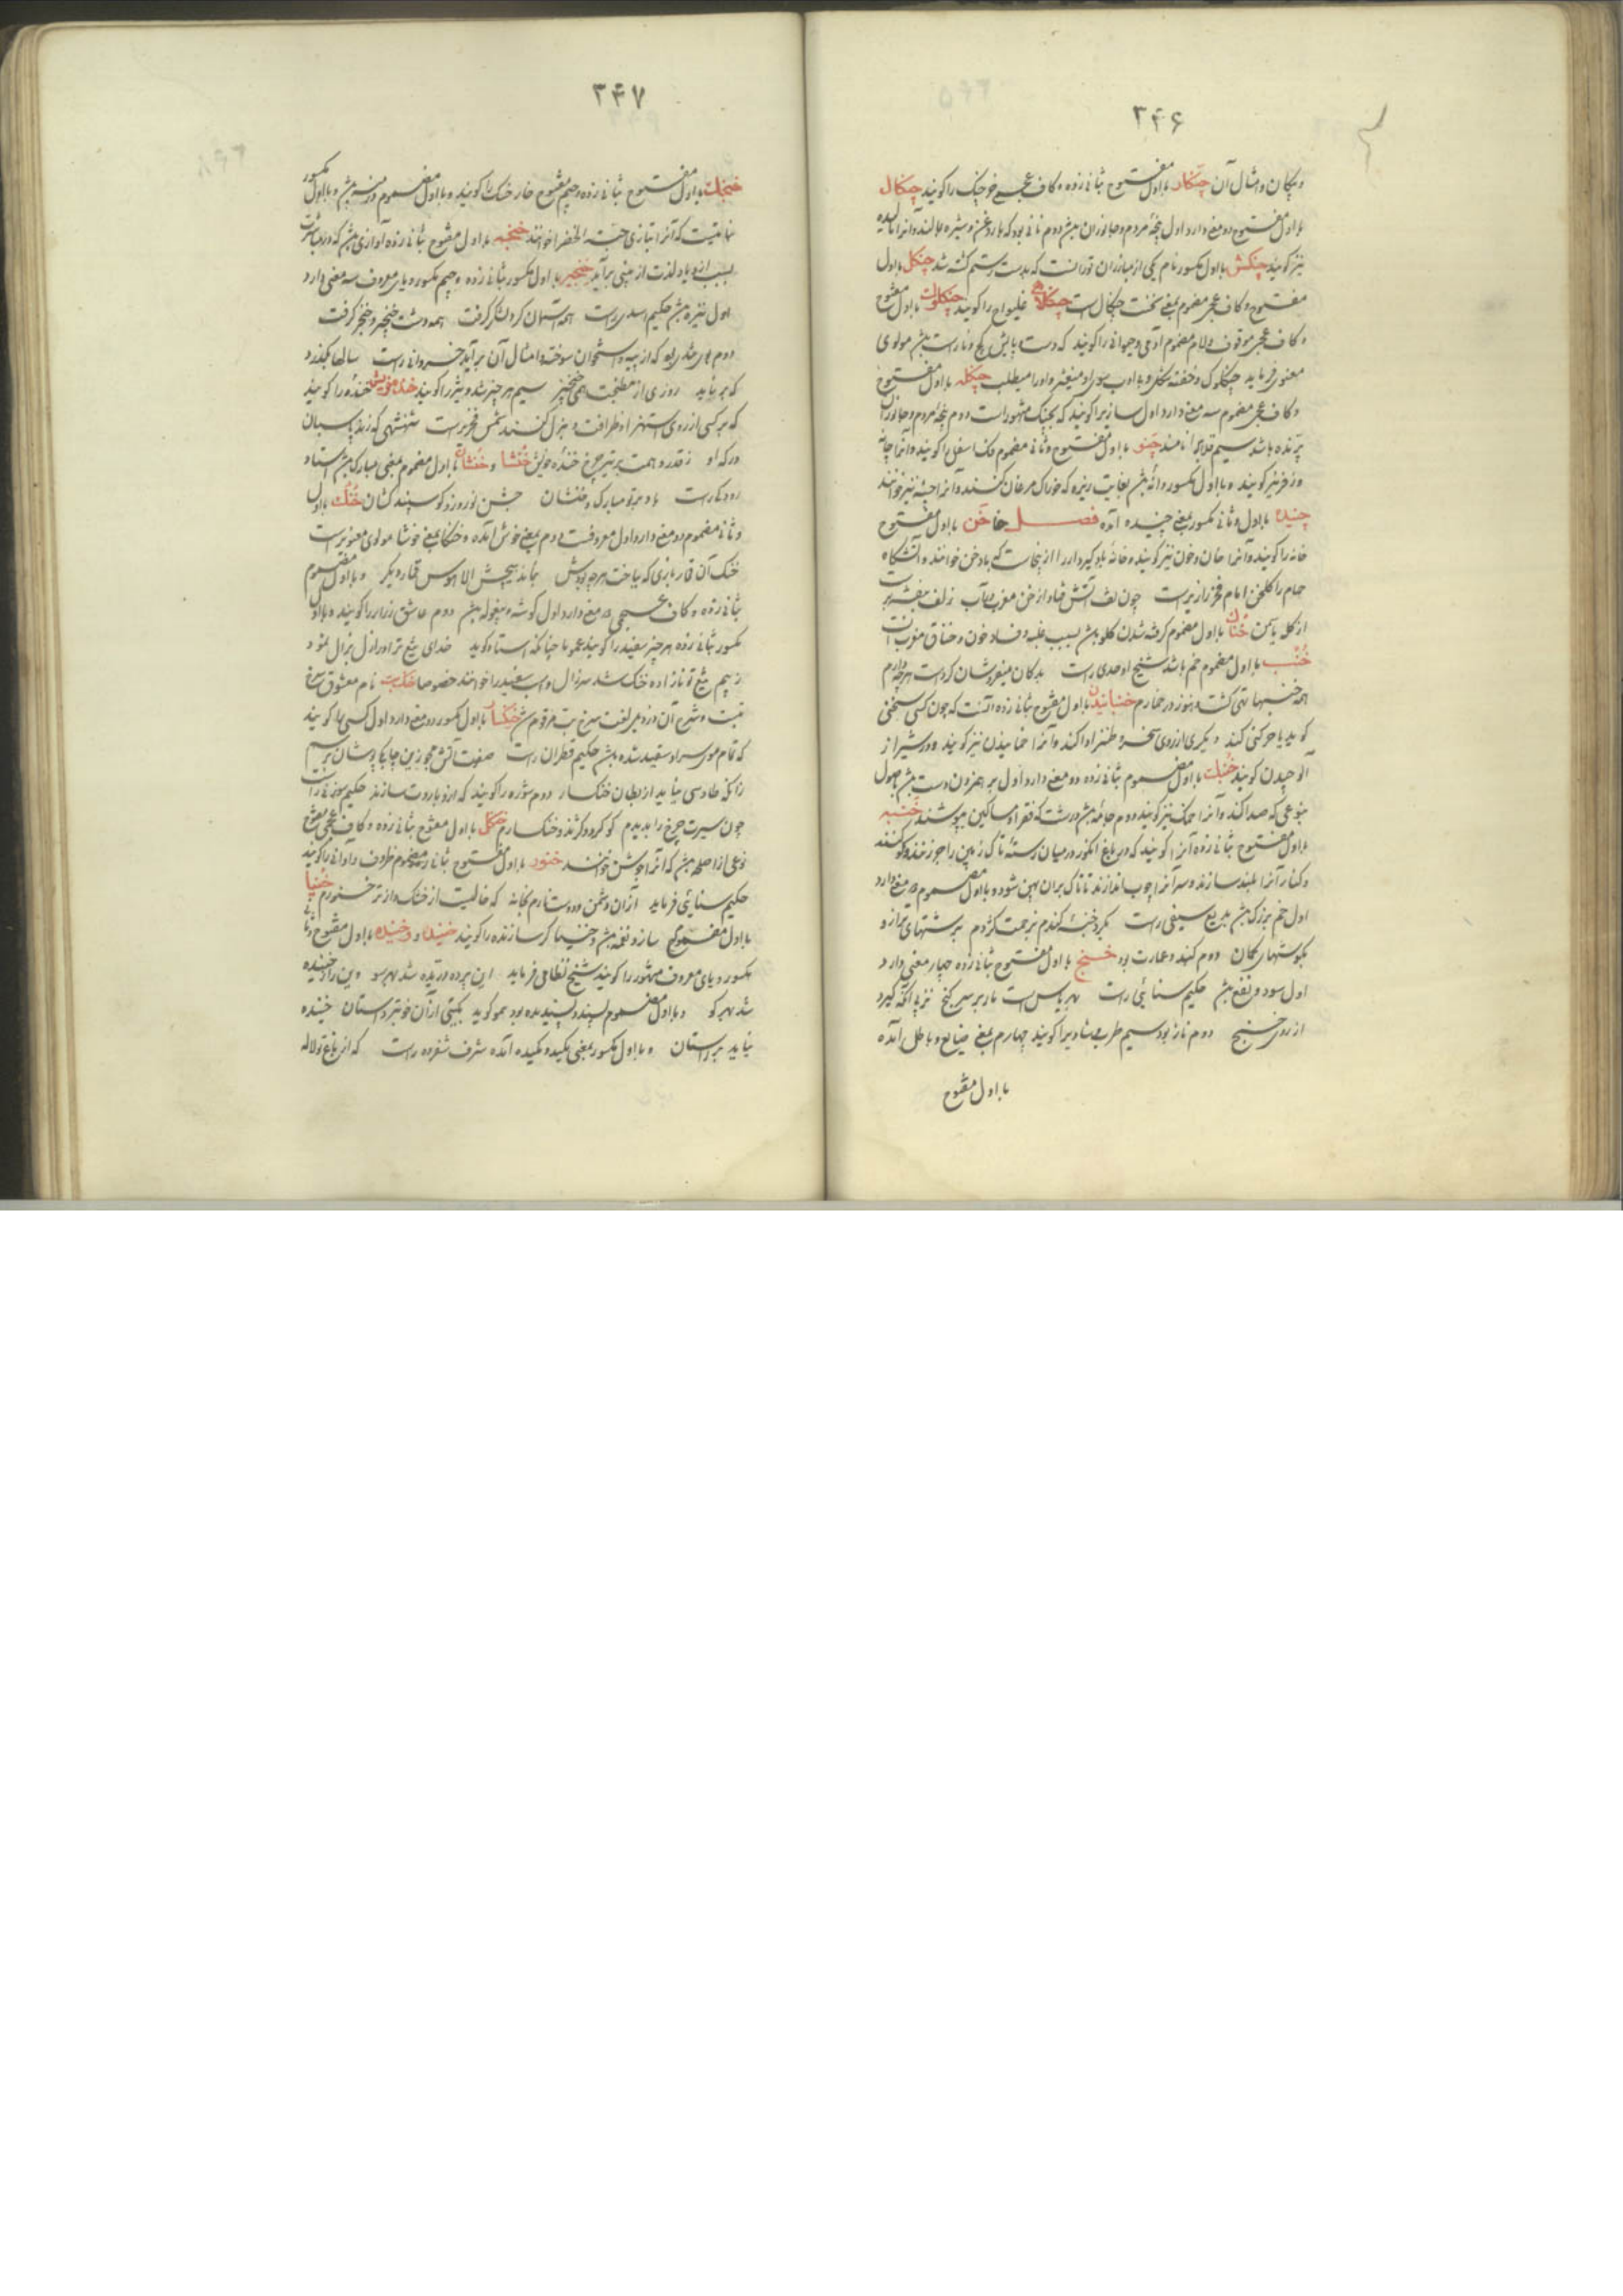 ۳۴۶
و پیکان و امثال آن چنگار با اول مفتوح بثانی زده و کاف عجمی خرچنگ را گویند چنگال
با اول مفتوح دو معنی دارد اول پنجهٔ مردم و جانوران باشد دوم نانی بود که با روغن و شیره بمالند و آنرا
نیز گویند چنگش با اول مکسور نام یکی از مبارزان تورانست که بدست رستم کشته شد چنگل با اول
مفتوح و کاف عجمی مضموم بمعنی نخست چنگال است چنگلاهی غلیواج را گویند چنگلوک با اول مفتوح
و کاف عجمی موقوف و لام مضموم آدمی و حیوانی را گویند که دست و پایش کج و ناراست باشد مولوی
معنوی فرماید چنگلوک و خفته شکل و بی ادب سوی او میغیژ و او را میطلب چنگله با اول مفتوح
و کاف عجمی مضموم سه معنی دارد اول سازیرا گویند که بچنگ مشهور است دوم پنجهٔ مردم و جانوران
پرنده باشد سیم قلاب را نامند با اول مفتوح و ثانی مضموم
گویند و با اول مکسور دانهٔ باشد بغایت ریزه که خوراک مرغان کنند و آنرا نیز خوانند
چنیده با اول و ثانی مکسور بمعنی چیده آمده فصل خا خن با اول مفتوح
خانه را گویند و آنرا خان و خون نیز گویند و خانهٔ بادگیردار را از ینجاست که بادخن خوانند و آتشگاه
حمام را گلخن امام فخر رازیراست چون لف آتش فتاد از خن مغرب زلف بنفشه
از کله یاسمن خناک با اول مضموم گرفته شدن گلو باشد بسبب غلبه و فساد خون و خناق معرب آنست
خنب با اول مضموم خم باشد شیخ اوحدی راست بدکان میفروشان گردست هرچه دارم
همه خنبها تهی گشت و هنوز در خمارم خنبانیدن با اول مفتوح بثانی زده آنست که چون کسی سخنی
گوید یا حرکتی کند دیگری از روی سخره و طنز ادا کند و آنرا خنبانیدن نیز گویند و در شیراز
گویند خنبک با اول مضموم بثانی زده دو معنی دارد اول برهم زدن دست باشد باصول
بنوعی که صدا کند و آنرا خمک نیز گویند دوم جامهٔ باشد درشت که فقرا و مساکین پوشند خنبه
با اول مفتوح بثانی زده آنرا گویند که در باغ انگور در میان رسته تاک زمین را
و کنار آنرا بلند سازند و سر آنرا چوب اندازند تا تاک بر آن پهن شود و با اول مضموم دو معنی دارد
اول خم بزرگ باشد بدیع سیفی راست بگرد خنبهٔ گندم
دوم گنبد و عمارت بود خنج با اول مفتوح بثانی زده چهار معنی دارد
اول سود و نفع باشد حکیم سنائی راست
از روی خنج دوم ناز بود سیم طرب و شادی را گویند چهارم بمعنی ضایع و باطل آمده
با اول مفتوح
۳۴۷
خنجک با اول مفتوح بثانی زده و جیم مفتوح خار خسک را گویند و با اول مضموم باشد و با اول مکسور
نباتیست که آنرا بتازی حبة الخضرا خوانند خنجه با اول مفتوح بثانی زده آوازی باشد که در وقت مباشرت
بسبب ازدیاد لذت از بینی برآید خنجیر با اول مکسور بثانی زده و جیم مکسور و یای معروف سه معنی دارد
اول نیزه باشد حکیم اسدی راست همه آسمان گرد لشکر گرفت همه دشت خنجیر و خنجر گرفت
دوم بوی بود که از پیه و استخوان سوخته و امثال آن برآید خسروانی راست سالها بگذرد
که برنیاید روزی از مطبخت همی خنجیر سیم هر چیز تند و تیز را گویند خندخریش خنده را گویند
که بر کسی از روی استهزا و ظرافت و هزل کنند شمس فخریراست شهنشهی که زند پاسبان
درگه او ز قدر و همت بر تیر چرخ خنده خریش خنشا و خنشان با اول مضموم بمعنی مبارک باشد استاد
رودکی راست باد بر تو مبارک و خنشان جشن نوروز و گوسپند کشان خنک با اول
و ثانی مضموم دو معنی دارد اول معروفست دوم بمعنی خوش آمده و خنکا بمعنی خوشا مولوی معنویراست
خنک آن قماربازی که بباخت هر چه بودش بنماند هیچش الا هوس قمار دیگر و با اول مضموم
بثانی زده و کاف عجمی دو معنی دارد اول گوشه و بیغوله باشد دوم عاشق زار را گویند و با اول
مکسور بثانی زده هر چیز سفید را گویند عموما چنانکه استاد گوید خدای تیغ ترا از ازل بزال نمود
ز بیم تیغ تو نازاده خنگ شد سر زال و اسب سفید را خوانند خصوصا خنگ بت نام معشوق سرخ
بت و شرح آن در ذیل لغت سرخ بت مرقوم شد خنگسار با اول مکسور دو معنی دارد اول کسی را گویند
که تمام موی سر او سفید شده باشد حکیم قطران راست
زانکه طاوسی نیاید از بطان خنگسار دوم شوره را گویند که ازو باروت سازند حکیم سوزنی راست
چون سیرت چرخ را بدیدم کو کرد و خنگسارم خنگل با اول مفتوح بثانی زده و کاف عجمی مفتوح
نوعی از اسلحه باشد که آنرا جوشن خوانند خنور با اول مفتوح بثانی مضموم ظروف و اوانی را گویند
حکیم سنائی فرماید از آن دشمن و دوست نارم بخانه که خالیست از خشک و از تر خنورم خنیا
با اول مضموم ساز و نغمه باشد و خنیاگر سازنده را گویند خنید و خنیده با اول مفتوح و ثانی
مکسور و یای معروف مشهور را گویند شیخ نظامی فرماید این پرده دریده شد بهر سو وین راز خنیده
شد بهر کو و با اول مضموم پسند و پسندیده بود همو گوید بگیتی از آن خوبتر داستان خنیده
نیاید بر راستان و با اول مکسور بمعنی مکید و مکیده آمده شرف شفروه راست که از باغ تو لاله